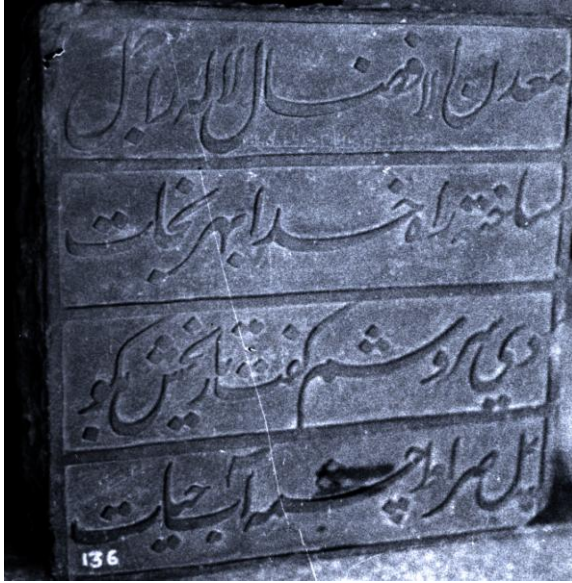 معدن افضال لاله
ساخت راه خدا بهر نجات
دی سروشم گفت تاریخش بگو
پل صراط و چشمه آب حیات
136